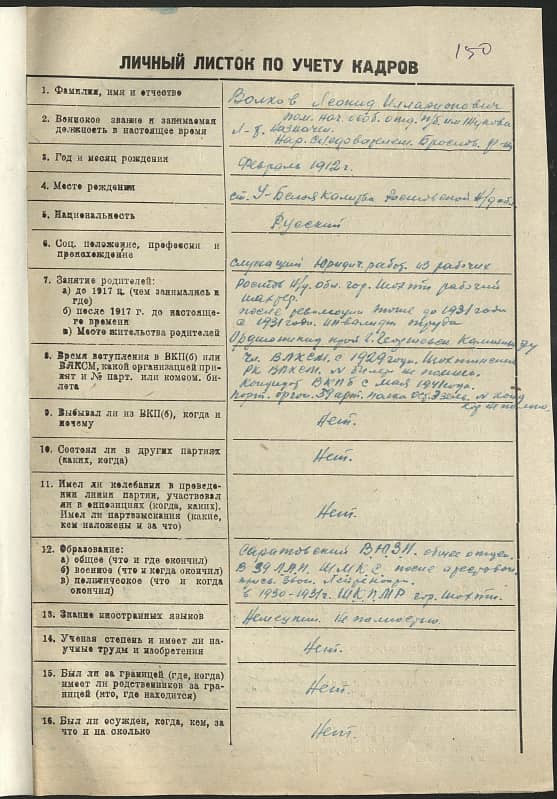 150
ЛИЧНЫЙ ЛИСТОК ПО УЧЕТУ КАДРОВ
1. Фамилия, имя и отчество
Волков Леонид Илларионович
2. Воинское звание и занимаемая
должность в настоящее время
пом. нач. особ. отд.
Нар. следователем
3. Год и месяц рождения
Февраль 1912 г.
4. Место рождения
ст. У-Белая Калитва Ростовской н/д обл.
5. Национальность
Русский
6. Соц. положение, профессия и
происхождение
Служащий Юридич. работ. из рабочих
7. Занятие родителей:
а) до 1917 ц. (чем занимались и
где)
б) после 1917 г. до настояще-
го времени
в) Место жительства родителей
Ростов н/д. обл. гор. Шахты рабочий
шахтер.
после революции тоже до 1931 года
с 1931 года инвалид труда
8. Время вступления в ВКП(б) или
ВЛКСМ, какой организацией при-
нят и № парт. или комсом. би-
лета
чл. ВЛКСМ. с 1929 года. Шахтинским
РК ВЛКСМ. № билет не помню.
Кандидат ВКПБ с мая 1941 года.
9. Выбывал ли из ВКП(б), когда и
почему
Нет.
10. Состоял ли в других партиях
(каких, когда)
Нет.
11. Имел ли колебания в проведе-
нии линии партии, участвовал
ли в оппозициях (когда, каких).
Имел ли партвзыскания (какие,
кем наложены и за что)
Нет.
12. Образование:
а) общее (что и где окончил)
б) военное (что и когда окончил)
в) политическое (что и когда
окончил)
Саратовский В.Ю.З.И. общее отдел.
В 39 Л.А.П. Ш.М.К.С. после
присв. звание Лейтенант.
в 1930-1931 г. ШКПМР гор. Шахты.
13. Знание иностранных языков
Немецкий. Не полностью.
14. Ученая степень и имеет ли на-
учные труды и изобретения
Нет.
15. Был ли за границей (где, когда)
имеет ли родственников за гра-
ницей (кто, где находится)
Нет.
16. Был ли осужден, когда, кем, за
что и на сколько
Нет.